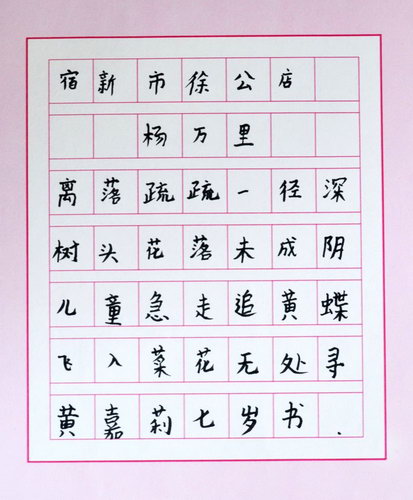 宿新市徐公店
杨万里
离落疏疏一径深
树头花落未成阴
儿童急走追黄蝶
飞入菜花无处寻
黄嘉莉七岁书.